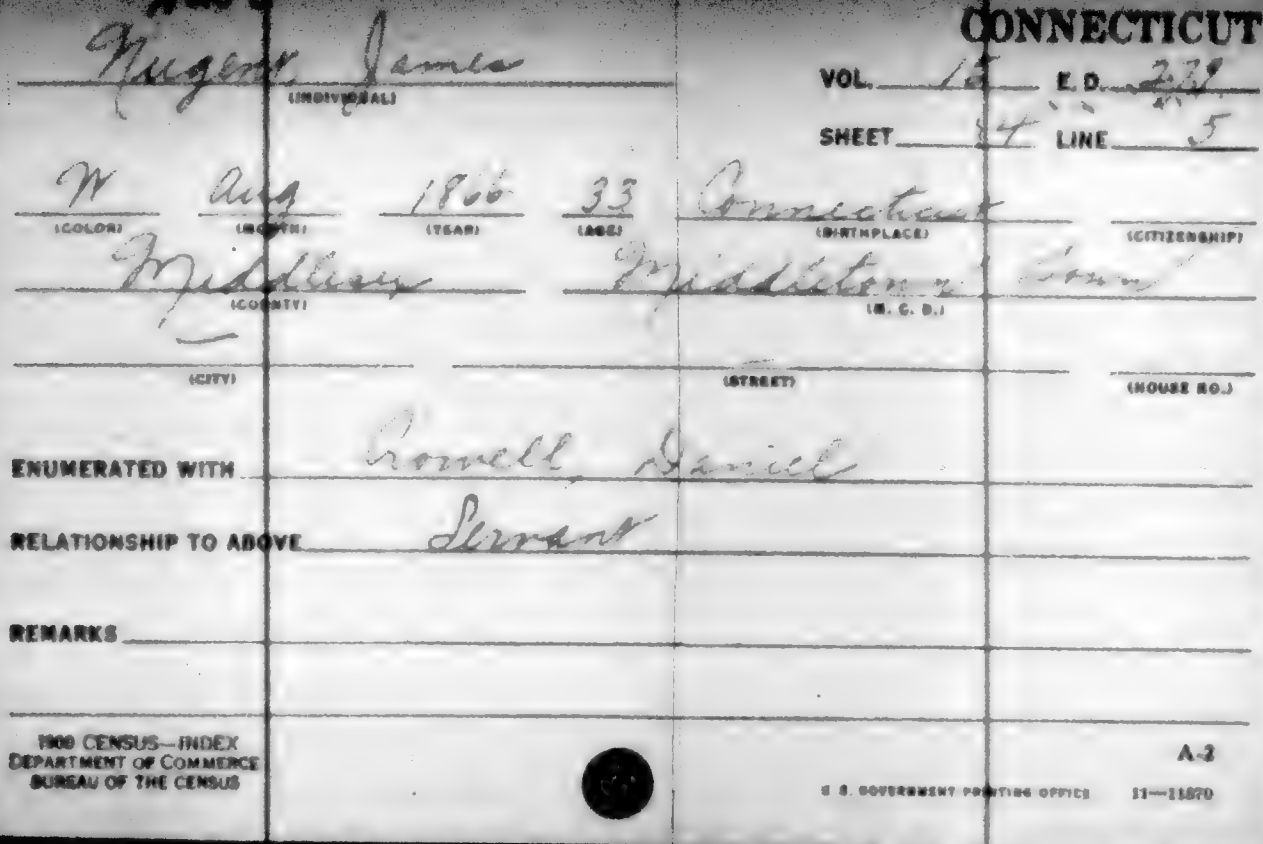 CONNECTICUT
Nugent James
(INDIVIDUAL)
VOL. 15 E. D. 279
SHEET 4 LINE 5
W Aug 1866 33 Connecticut
(COLOR) (MONTH) (YEAR) (AGE) (BIRTHPLACE) (CITIZENSHIP)
Middlesex Middletown Town
(COUNTY) (M. C. D.)
(CITY) (STREET) (HOUSE NO.)
ENUMERATED WITH Crowell Daniel
RELATIONSHIP TO ABOVE Servant
REMARKS
1900 CENSUS—INDEX
DEPARTMENT OF COMMERCE
BUREAU OF THE CENSUS
A-2
U. S. GOVERNMENT PRINTING OFFICE 11—11870